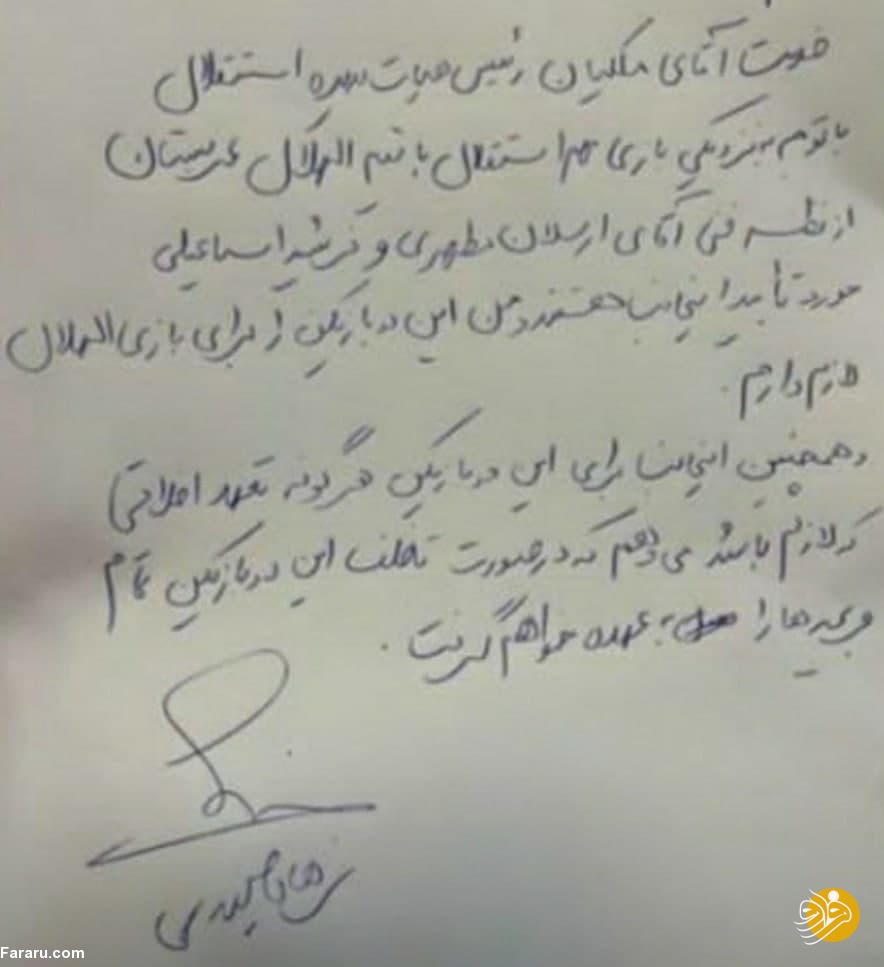 خدمت آقای ملکیان رئیس هیات مدیره استقلال
با توجه به نزدیکی بازی مهم استقلال با تیم الهلال عربستان
از نظر فنی آقای ارسلان مطهری و فرشید اسماعیلی
مورد تأیید اینجانب هستند و من این دو بازیکن را برای بازی الهلال
لازم دارم.
و همچنین اینجانب برای این دو بازیکن هرگونه تعهد اخلاقی
که لازم باشد می دهم که در صورت تخلف این دو بازیکن تمام
جریمه ها را به عهده خواهم گرفت.
فرهاد مجیدی
فرارو
Fararu.com